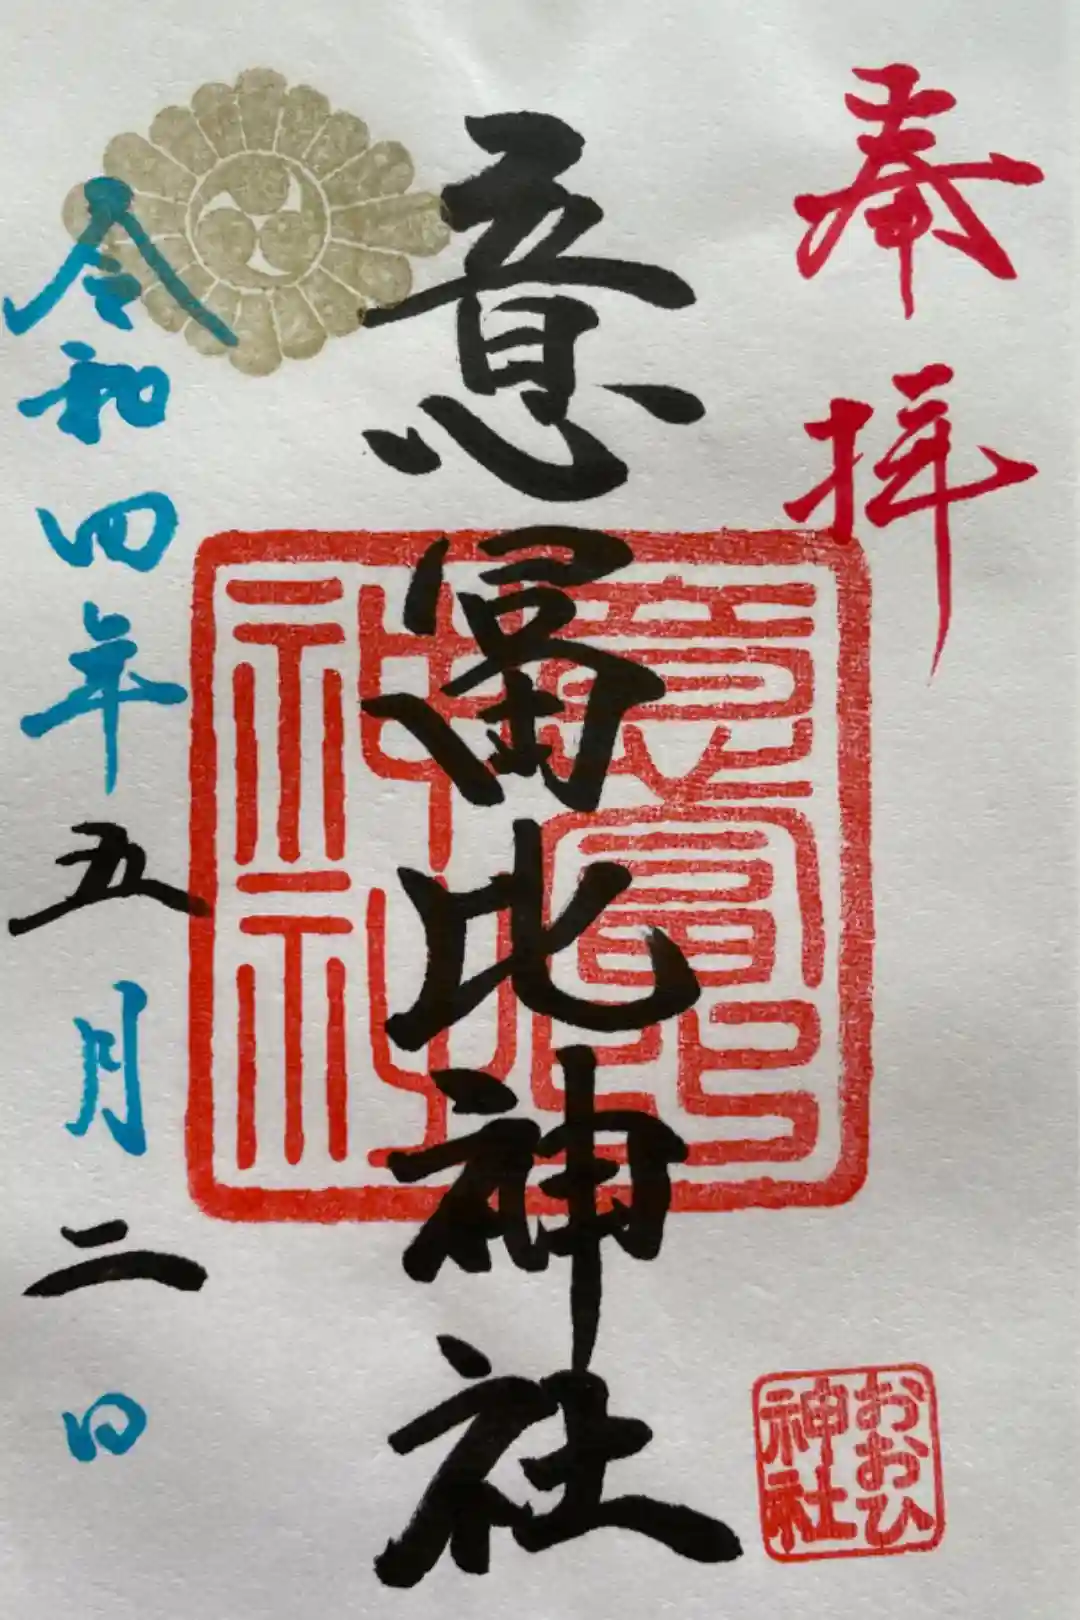 奉拝
意富比神社
意富比神社
令和四年五月二日
おおひ
神社